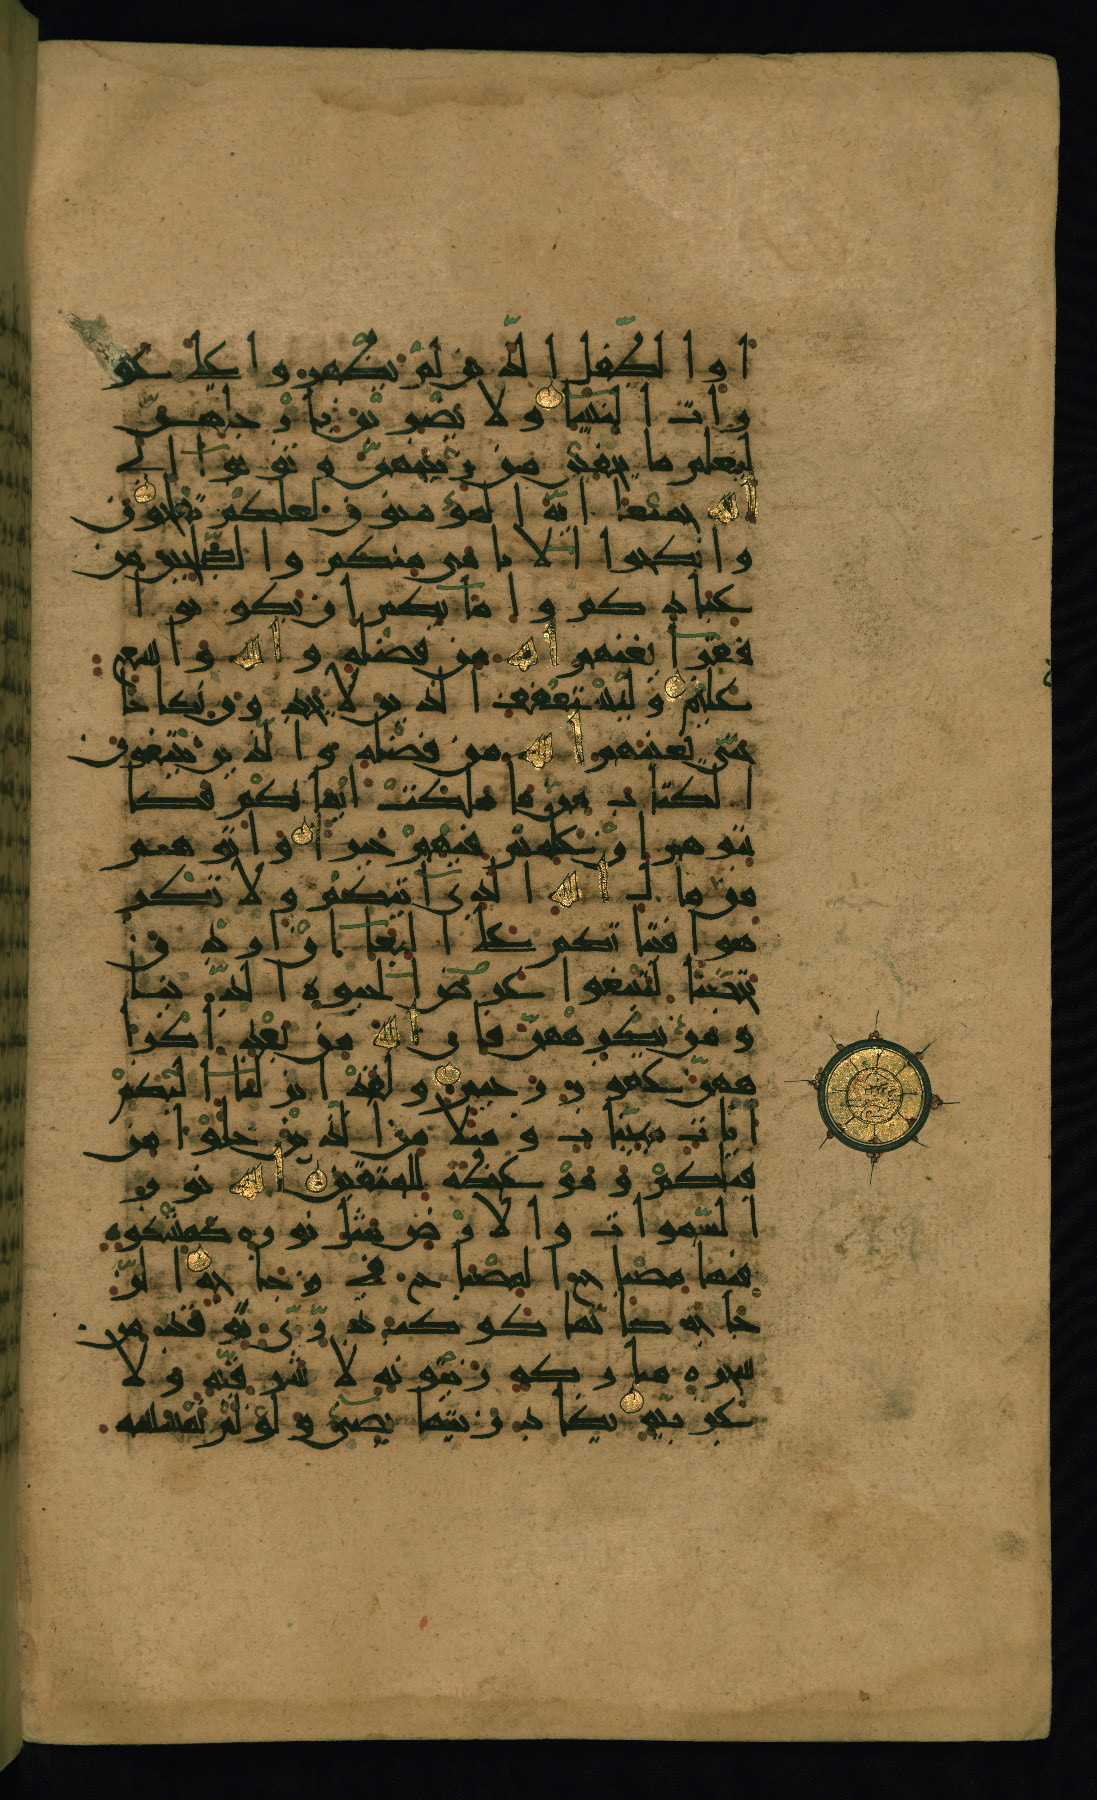 او الطفل الذين لم يظهروا على عو
رات النسا ولا يضربن بارجلهن
ليعلم ما يخفين من زينتهن وتوبوا الى
الله جميعا ايه المؤمنون لعلكم تفلحون
وانكحوا الايامى منكم والصالحين من
عبادكم وامائكم ان يكونوا
فقرا يغنهم الله من فضله والله واسع
عليم وليستعفف الذين لا يجدون نكاحا
حتى يغنيهم الله من فضله والذين يبتغون
الكتاب مما ملكت ايمانكم فكا
تبوهم ان علمتم فيهم خيرا واتوهم
من مال الله الذى اتيكم ولا تكر
هوا فتياتكم على البغا ان اردن
تحصنا لتبتغوا عرض الحيوة الدنيا
ومن يكرههن فان الله من بعد اكرا
ههن غفور رحيم ولقد انزلنا اليكم
ايات مبينات ومثلا من الذين خلوا من
قبلكم وموعظة للمتقين الله نور
السموات والارض مثل نوره كمشكوة
فيها مصباح المصباح في زجاجة الز
جاجة كانها كوكب درى توقد من
شجرة مباركة زيتونة لا شرقية ولا
غربية يكاد زيتها يضىء ولو لم تمسسه